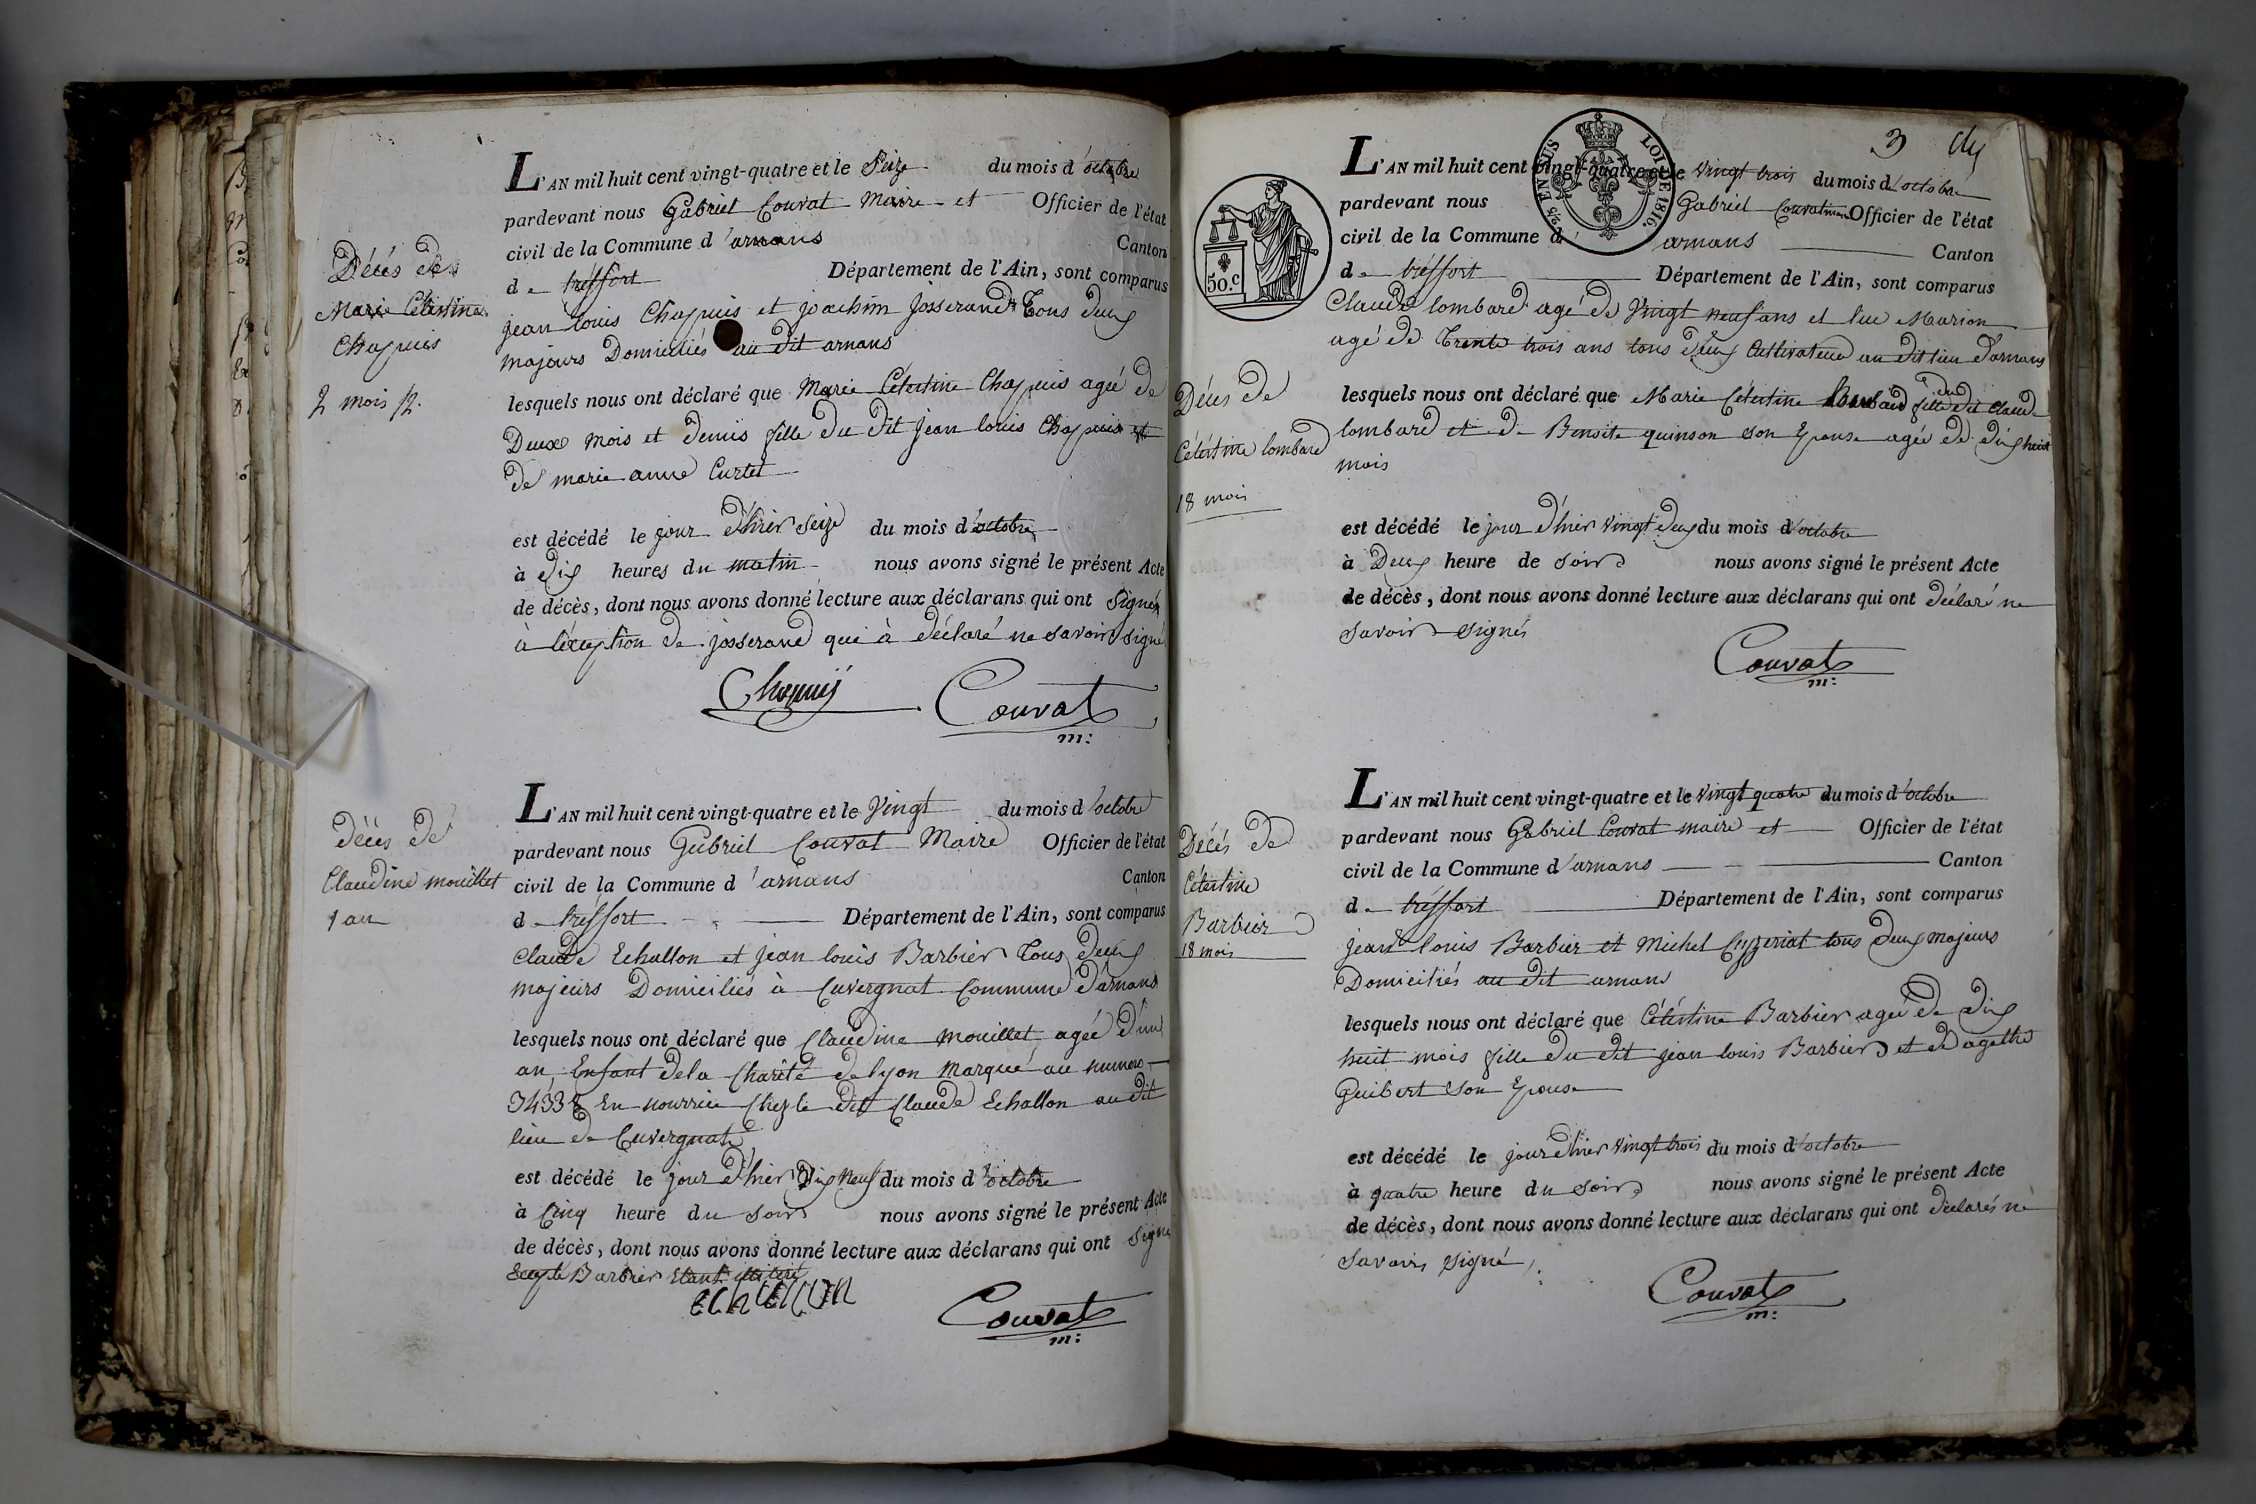 L'AN mil huit cent vingt-quatre et le Seize du mois d'octobre
pardevant nous Gabriel Couvat Maire et Officier de l'état
civil de la Commune d'arnans Canton
de tréffort Département de l'Ain, sont comparus
jean louis Chapuis et joachim josserand Tous deux
majeurs Domiciliés au dit arnans
Décès de
Marie Célestine
Chapuis
2 mois ½.
lesquels nous ont déclaré que Marie Célestine Chapuis agée de
Deux mois et demis fille du dit jean louis Chapuis et
de marie anne Curtet
est décédé le jour d'hier Seize du mois d'octobre
à dix heures du matin nous avons signé le présent Acte
de décès, dont nous avons donné lecture aux déclarans qui ont Signés
à l'éxception de josserand qui à déclaré ne savoir signé
Chapuis Couvat
m:
L'AN mil huit cent vingt-quatre et le Vingt du mois d'octobre
pardevant nous Gabriel Couvat Maire Officier de l'état
civil de la Commune d'arnans Canton
de tréffort Département de l'Ain, sont comparus
Claude Echallon et jean louis Barbier Tous deux
majeurs Domiciliés à Cuvergnat Commune d'arnans
décès de
Claudine mouillet
1 an
lesquels nous ont déclaré que Claudine mouillet agée d'un
an, Enfant de la Charité de lyon Marqué au numero
34338 En nourrice Chez le dit Claude Echallon au dit
lieu de Cuvergnat
est décédé le jour d'hier Dix neuf du mois d'octobre
à Cinq heure du soir nous avons signé le présent Acte
de décès, dont nous avons donné lecture aux déclarans qui ont signé
Barbier Etant
echallon
Couvat
m:
3
L'AN mil huit cent vingt-quatre et le vingt trois du mois d'octobre
pardevant nous Gabriel Couvat maire Officier de l'état
civil de la Commune d'arnans Canton
de tréffort Département de l'Ain, sont comparus
Claude lombard agé de Vingt neuf ans et luc Marion
agé de Trente trois ans tous deux Cultivateur au dit lieu d'arnans
2/5 EN SUS
LOI DE 1816.
50.c
Décès de
Célestine lombard
18 mois
lesquels nous ont déclaré que Marie Célestine lombard fille du dit Claude
lombard et de Benoite quinson son Epouse agée de dix huit
mois
est décédé le jour d'hier vingt deux du mois d'octobre
à Deux heure de soir nous avons signé le présent Acte
de décès, dont nous avons donné lecture aux déclarans qui ont déclaré ne
savoir signés
Couvat
m:
L'AN mil huit cent vingt-quatre et le vingt quatre du mois d'octobre
pardevant nous Gabriel Couvat maire et Officier de l'état
civil de la Commune d'arnans Canton
de tréffort Département de l'Ain, sont comparus
jean louis Barbier et Michel Cyzeriat tous deux majeurs
Domiciliés au dit arnans
Décés de
Célestine
Barbier
18 mois
lesquels nous ont déclaré que Célestine Barbier agée de dix
huit mois fille du dit jean louis Barbier et de agathe
Guibert son Epouse
est décédé le jour d'hier vingt trois du mois d'octobre
à quatre heure du soir nous avons signé le présent Acte
de décès, dont nous avons donné lecture aux déclarans qui ont déclarés ne
savoir signé
Couvat
m: